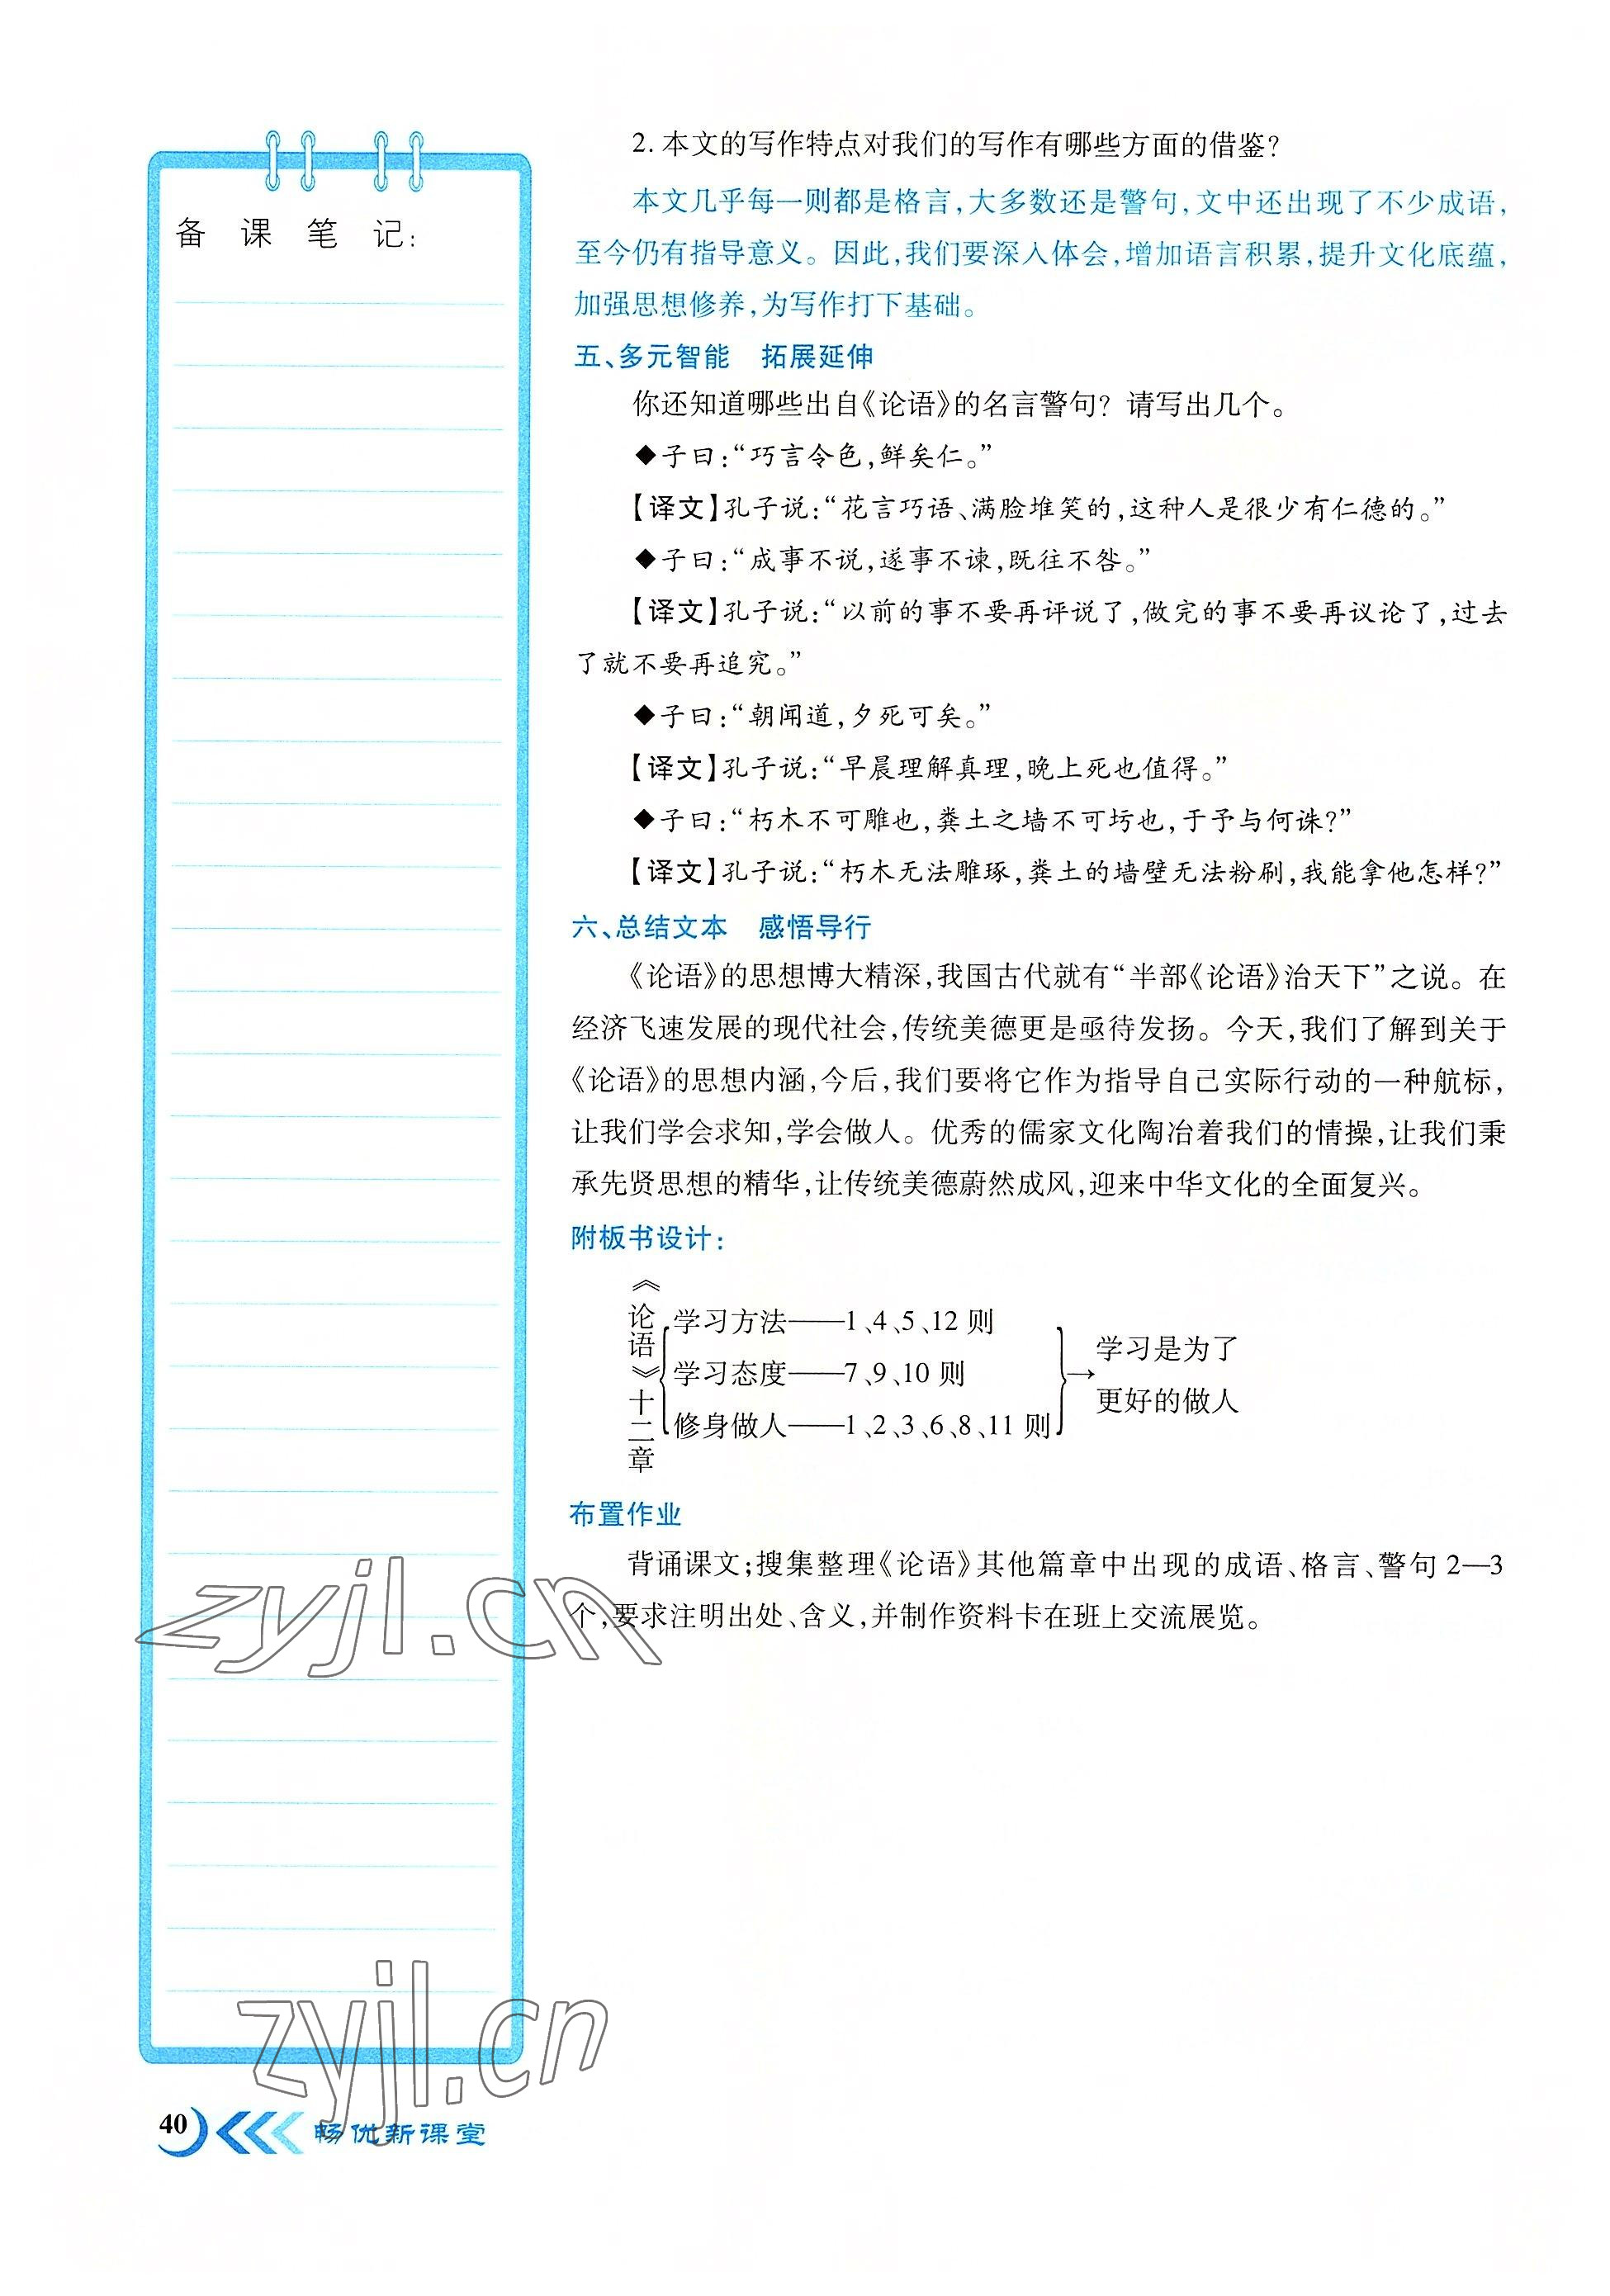 备 课 笔 记:
2. 本文的写作特点对我们的写作有哪些方面的借鉴?
本文几乎每一则都是格言,大多数还是警句,文中还出现了不少成语,
至今仍有指导意义。因此,我们要深入体会,增加语言积累,提升文化底蕴,
加强思想修养,为写作打下基础。
五、多元智能 拓展延伸
你还知道哪些出自《论语》的名言警句? 请写出几个。
◆子曰:“巧言令色,鲜矣仁。”
【译文】孔子说:“花言巧语、满脸堆笑的,这种人是很少有仁德的。”
◆子曰:“成事不说,遂事不谏,既往不咎。”
【译文】孔子说:“以前的事不要再评说了,做完的事不要再议论了,过去
了就不要再追究。”
◆子曰:“朝闻道,夕死可矣。”
【译文】孔子说:“早晨理解真理,晚上死也值得。”
◆子曰:“朽木不可雕也,粪土之墙不可圬也,于予与何诛?”
【译文】孔子说:“朽木无法雕琢,粪土的墙壁无法粉刷,我能拿他怎样?”
六、总结文本 感悟导行
《论语》的思想博大精深,我国古代就有“半部《论语》治天下”之说。在
经济飞速发展的现代社会,传统美德更是亟待发扬。今天,我们了解到关于
《论语》的思想内涵,今后,我们要将它作为指导自己实际行动的一种航标,
让我们学会求知,学会做人。优秀的儒家文化陶冶着我们的情操,让我们秉
承先贤思想的精华,让传统美德蔚然成风,迎来中华文化的全面复兴。
附板书设计:
《论语》十二章
学习方法——1、4、5、12 则
学习态度——7、9、10 则
修身做人——1、2、3、6、8、11 则
→
学习是为了
更好的做人
布置作业
背诵课文;搜集整理《论语》其他篇章中出现的成语、格言、警句 2—3
个,要求注明出处、含义,并制作资料卡在班上交流展览。
zyjl.cn
zyjl.cn
40
畅优新课堂